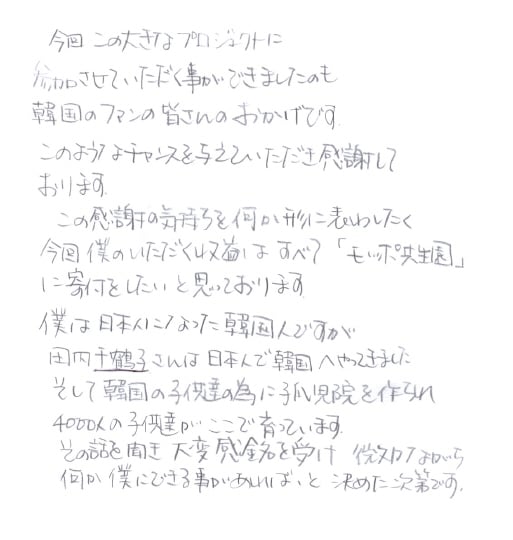 今回 この大きなプロジェクトに
参加させていただく事ができましたのも
韓国のファンの皆さんのおかげです.
このようなチャンスを与えていただき感謝して
おります.
この感謝の気持ちを何か形に表わしたく
今回 僕のいただく収益は すべて 「モッポ共生園」
に寄付をしたいと思っております.
僕は日本人になった韓国人ですが
田内千鶴子さんは日本人で韓国へやってきました
そして韓国の子供達の為に孤児院を作られ
4000人の子供達がここで育っています.
その話を聞き 大変感銘を受け 微力ながら
何か僕にできる事があればと 決めた次第です.